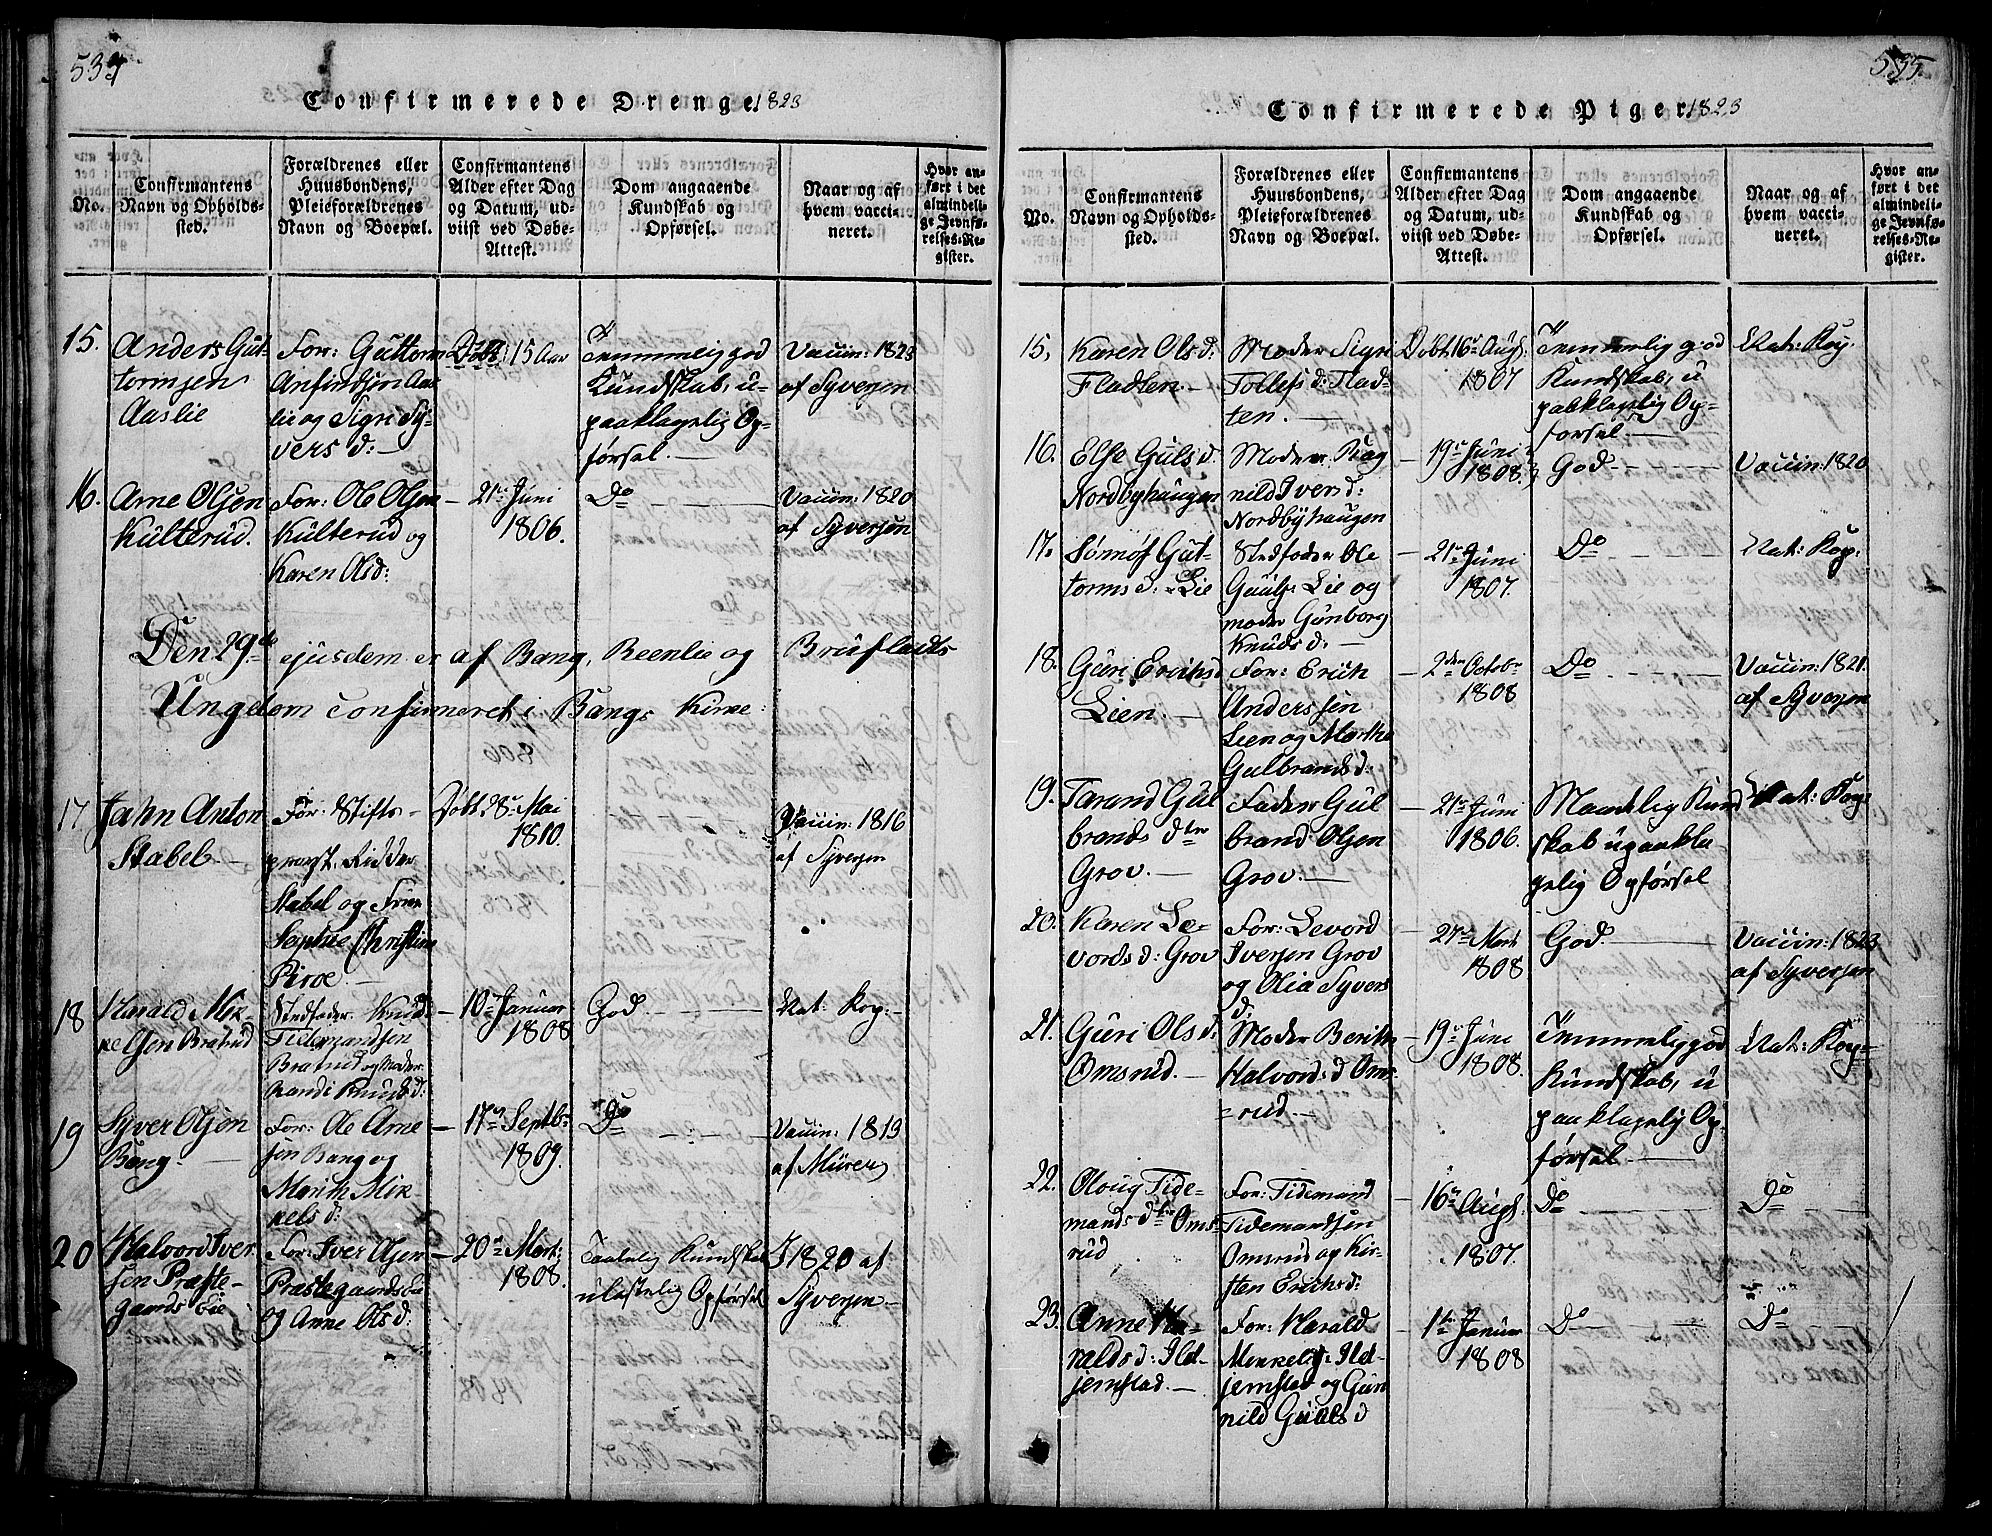 534
Confirmerede Drenge 1823
No.
Confirmantens
Navn og Opholds-
sted.
Forældrenes eller
Huusbondens,
Pleieforældrenes
Navn og Boepæl.
Confirmantens
Alder efter Dag
og Datum, ud-
viist ved Døbe-
Attest.
Dom angaaende
Kundskab og
Opførsel.
Naar og af
hvem vacci-
neret.
Hvor an-
ført i det
almindeli-
ge Jevnfø-
relses-Re-
gister.
15.
Anders Gut-
tormsen
Aaslie
For: Guttorm
Anfindsen Aas
lie og Sigri Sy-
vers d:
Døbt 15 Aar
Temmelig god
Kundskab, u-
paaklagelig Op-
førsel.
Vaccin: 1823
af Syversen
16.
Arne Olsen
Kulterud.
For: Ole Olsen
Kulterud og
Karen Olsd:
21de Juni
1806.
Do
Vaccin: 1820
af Syversen
Den 29de ejusdem er af Bang, Reenlie og Bruflads
Ungdom confirmeret i Bangs Kirke:
17
Jahn Anton
Stabel.
For: Stifts-
provst, Ridder
Stabel og Frue
Sophie Christine
Piroe.
Døbt 28de Mai
1810.
Vaccin: 1816
af Syversen
18
Harald Mik-
kelsen Bratrud
Stedfader Knud
Tidemandsen
Bratrud og Moder
Randi Knuds d:
10de Januar
1808
God
Nat: Kop:
19
Syver Olsen
Bang
For: Ole Arne
sen Bang og
Marith Mik-
kels d:
17de Septbr
1809.
Do
Vaccin: 1819
af Müren
20
Halvord Iver
sen Præste-
gaards Eie
For: Iver Olsen
Præstegaards Eie
og Anne Olsd:
20de Mart:
1808.
Taalelig Kundskab
ulastelig Opførsel
I 1820 af
Syversen
535
Confirmerede Piger 1823
No.
Confirmantens
Navn og Opholds-
sted.
Forældrenes eller
Huusbondens,
Pleieforældrenes
Navn og Boepæl.
Confirmantens
Alder efter Dag
og Datum, ud-
viist ved Døbe-
Attest.
Dom angaaende
Kundskab og
Opførsel.
Naar og af
hvem vacci-
neret.
Hvor an-
ført i det
almindeli-
ge Jevnfø-
relses-Re-
gister.
15,
Karen Ols d:
Fladten.
Moder Sigri
Tollefs d: Flad-
ten.
Døbt 16de Aug.
1807
Temmelig god
Kundskab, u
paaklagelig Op-
førsel.
Nat: Kop.
16.
Else Guls d.
Nordbyhaugen
Moder Rag
nild Ivers d:
Nordbyhaugen
19de Juni
1808.
God
Vaccin: 1820
17.
Sønnøf Gut-
torms d: Lie
Stedfader Ole
Guuls: Lie og
moder Gunborg
Knuds d:
21de Juni
1807.
Do
Nat: Kop:
18.
Guri Erichs d
Lien.
For: Erich
Anderssen
Lien og Marthe
Gulbrands d:
2den Octobr
1808
Do
Vaccin: 1821.
af Syversen
19.
Tarand Gul
brands dtr
Grov.
Fader Gul
brand Olsen
Grov.
21de Juni
1806.
Maadelig Kund
skab upaakla-
gelig Opførsel
Nat: Kop:
20.
Karen Le-
vords d: Grov
For: Levord
Iversen Grov
og Olia Syvers
d:
27de Mart
1808
God.
Vaccin: 1823
af Syversen
21.
Guri Ols d:
Omsrud.
Moder Berith
Halvord: d Oms
rud.
19de Juni
1808.
Temmelig god
Kundskab, u
paaklagelig Op-
førsel
Nat: Kop:
22.
Oloug Tide-
mands dtr Oms
rud
For: Tidemand
Tidemandsen
Omsrud og Kir-
sten Erichs d:
16de Aug.
1807.
Do
Do
23.
Anne Ha-
ralds d: Ild-
jernstad.
For: Harald
Mikkels: Ild-
jernstad og Gun
nild Guuls d
1ste Januar
1808
Do
Do